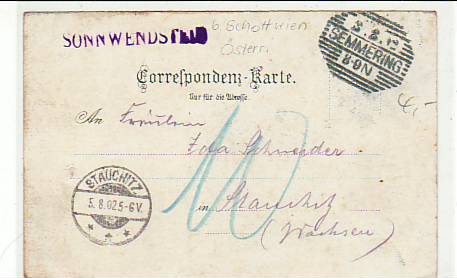 b. Schottwien
SONNWENDSTEIN
Österr.
SEMMERING
8-9N
Correspondenz-Karte.
Nur für die Adresse.
4,-
An Fräulein
Schneider
10
STAUCHITZ
5.8.02.5-6V.
in Stauchitz
(Sachsen)